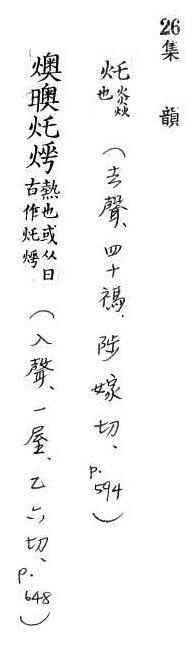 26 集韻
灹 炎 也 （去聲、四十禡、陟嫁切、p.594）
燠㬂灹 熱也或从日
古作灹 （入聲、一屋、乙六切、p.648）